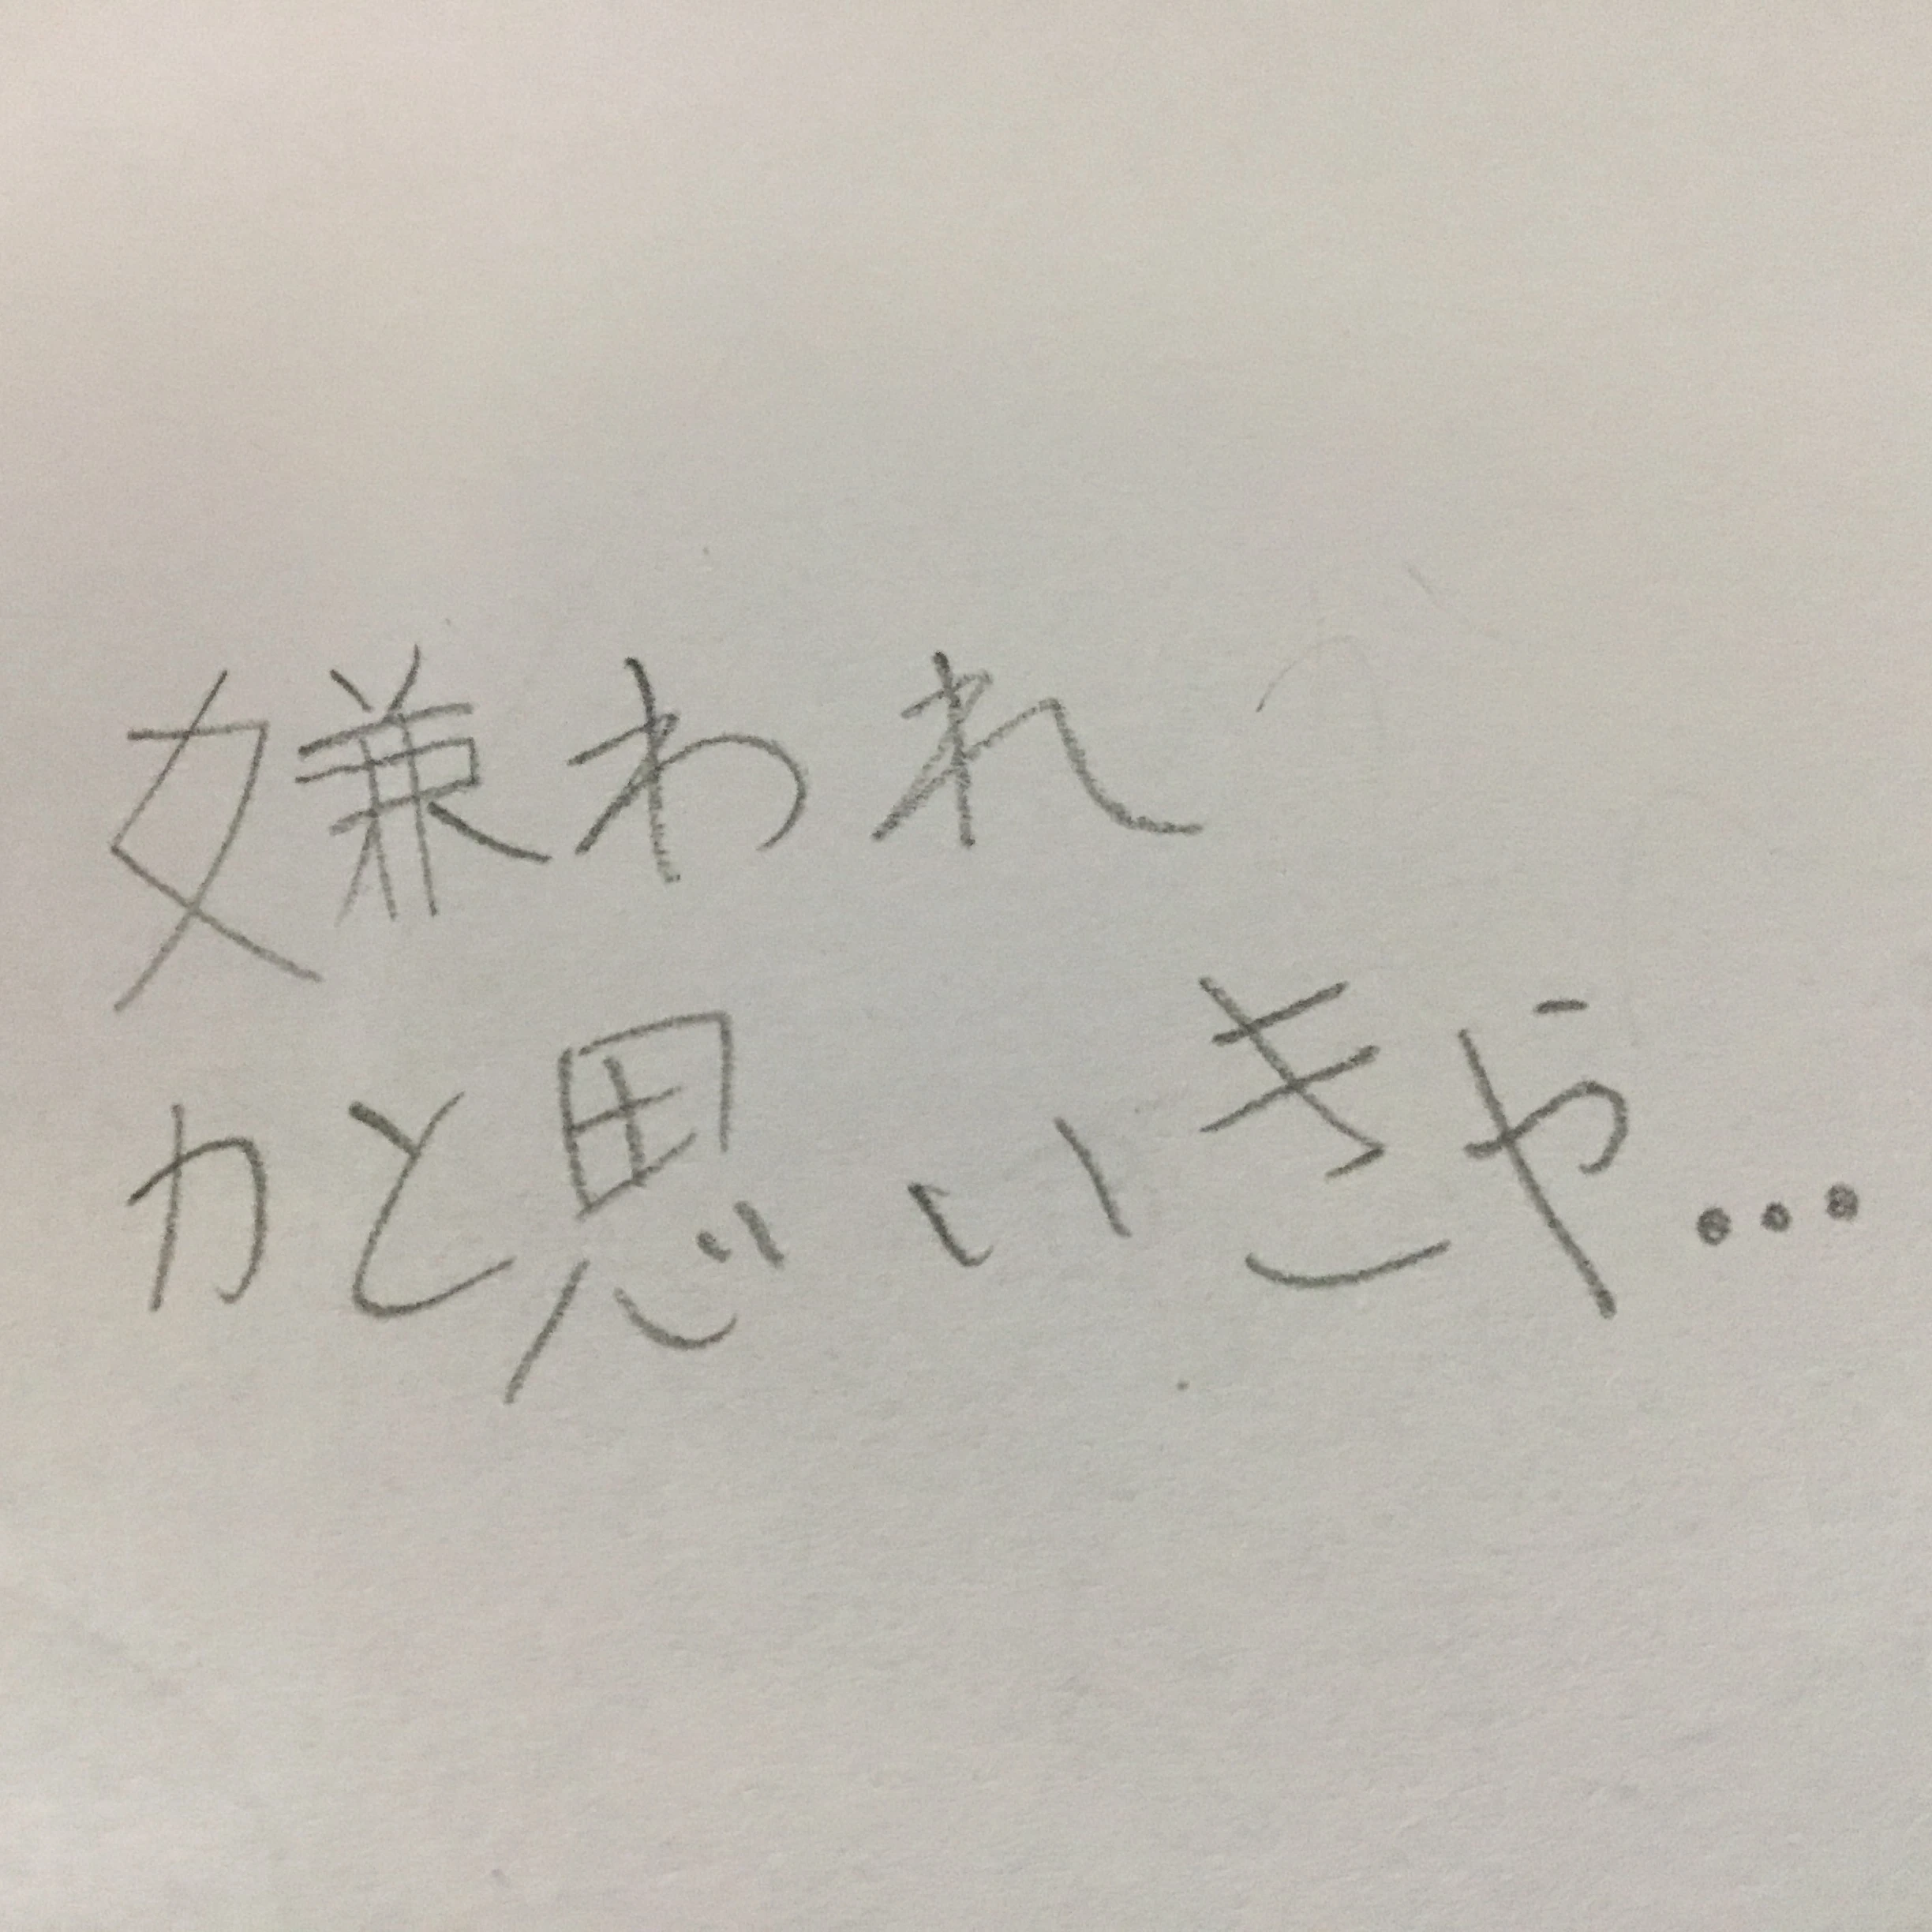 嫌われ
かと思いきや...